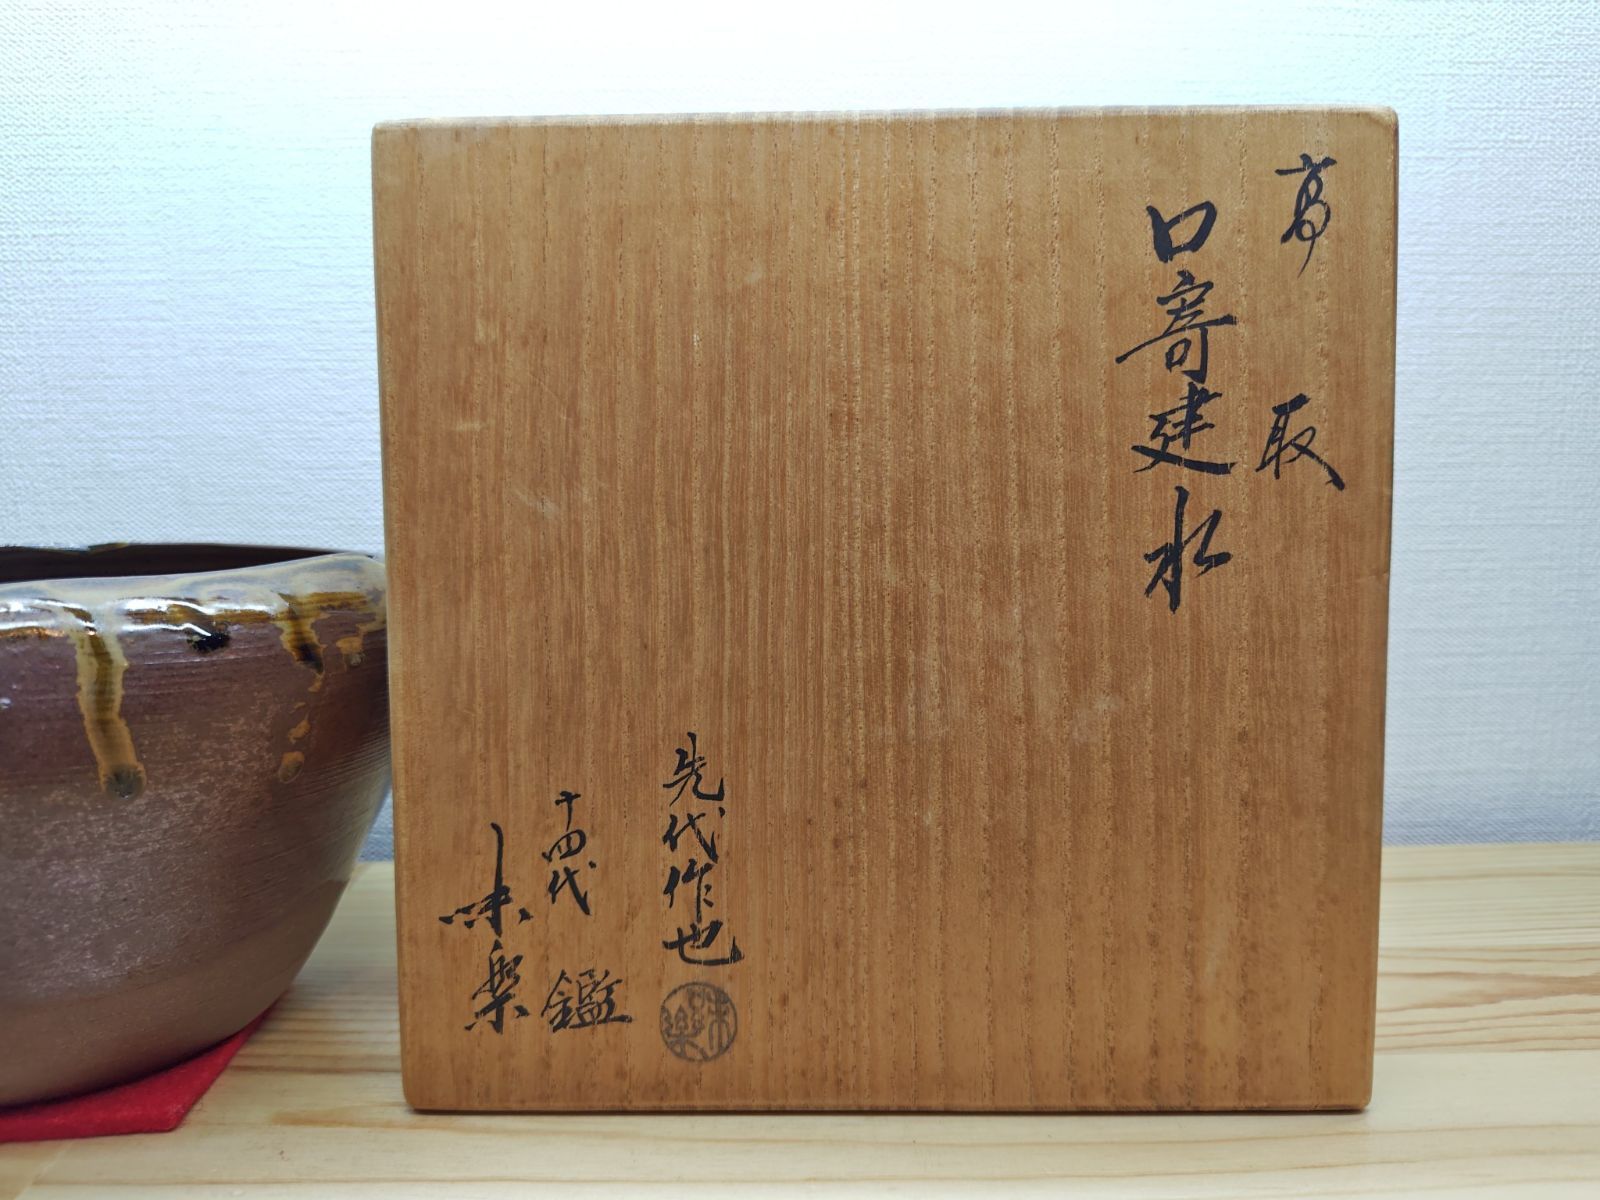 高取
口寄建水
先代作也
味楽
十四代
味楽鑑